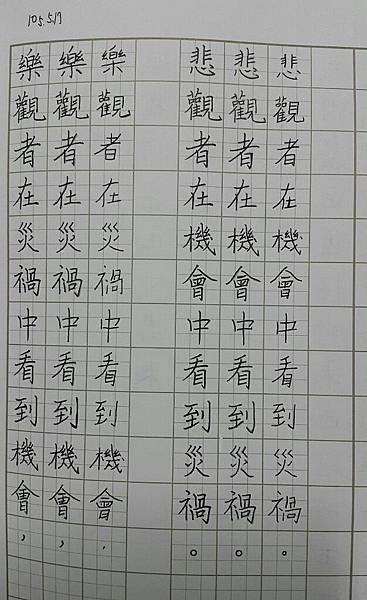 105.5.17
樂觀者在災禍中看到機會，
樂觀者在災禍中看到機會，
樂觀者在災禍中看到機會，
悲觀者在機會中看到災禍。
悲觀者在機會中看到災禍。
悲觀者在機會中看到災禍。